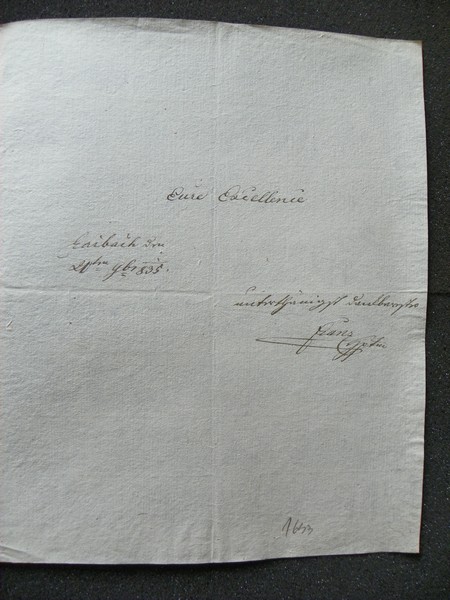 Eure Excellence
Laibach den
21ten 9br 1835.
unterthänigst dankbarster
Franz